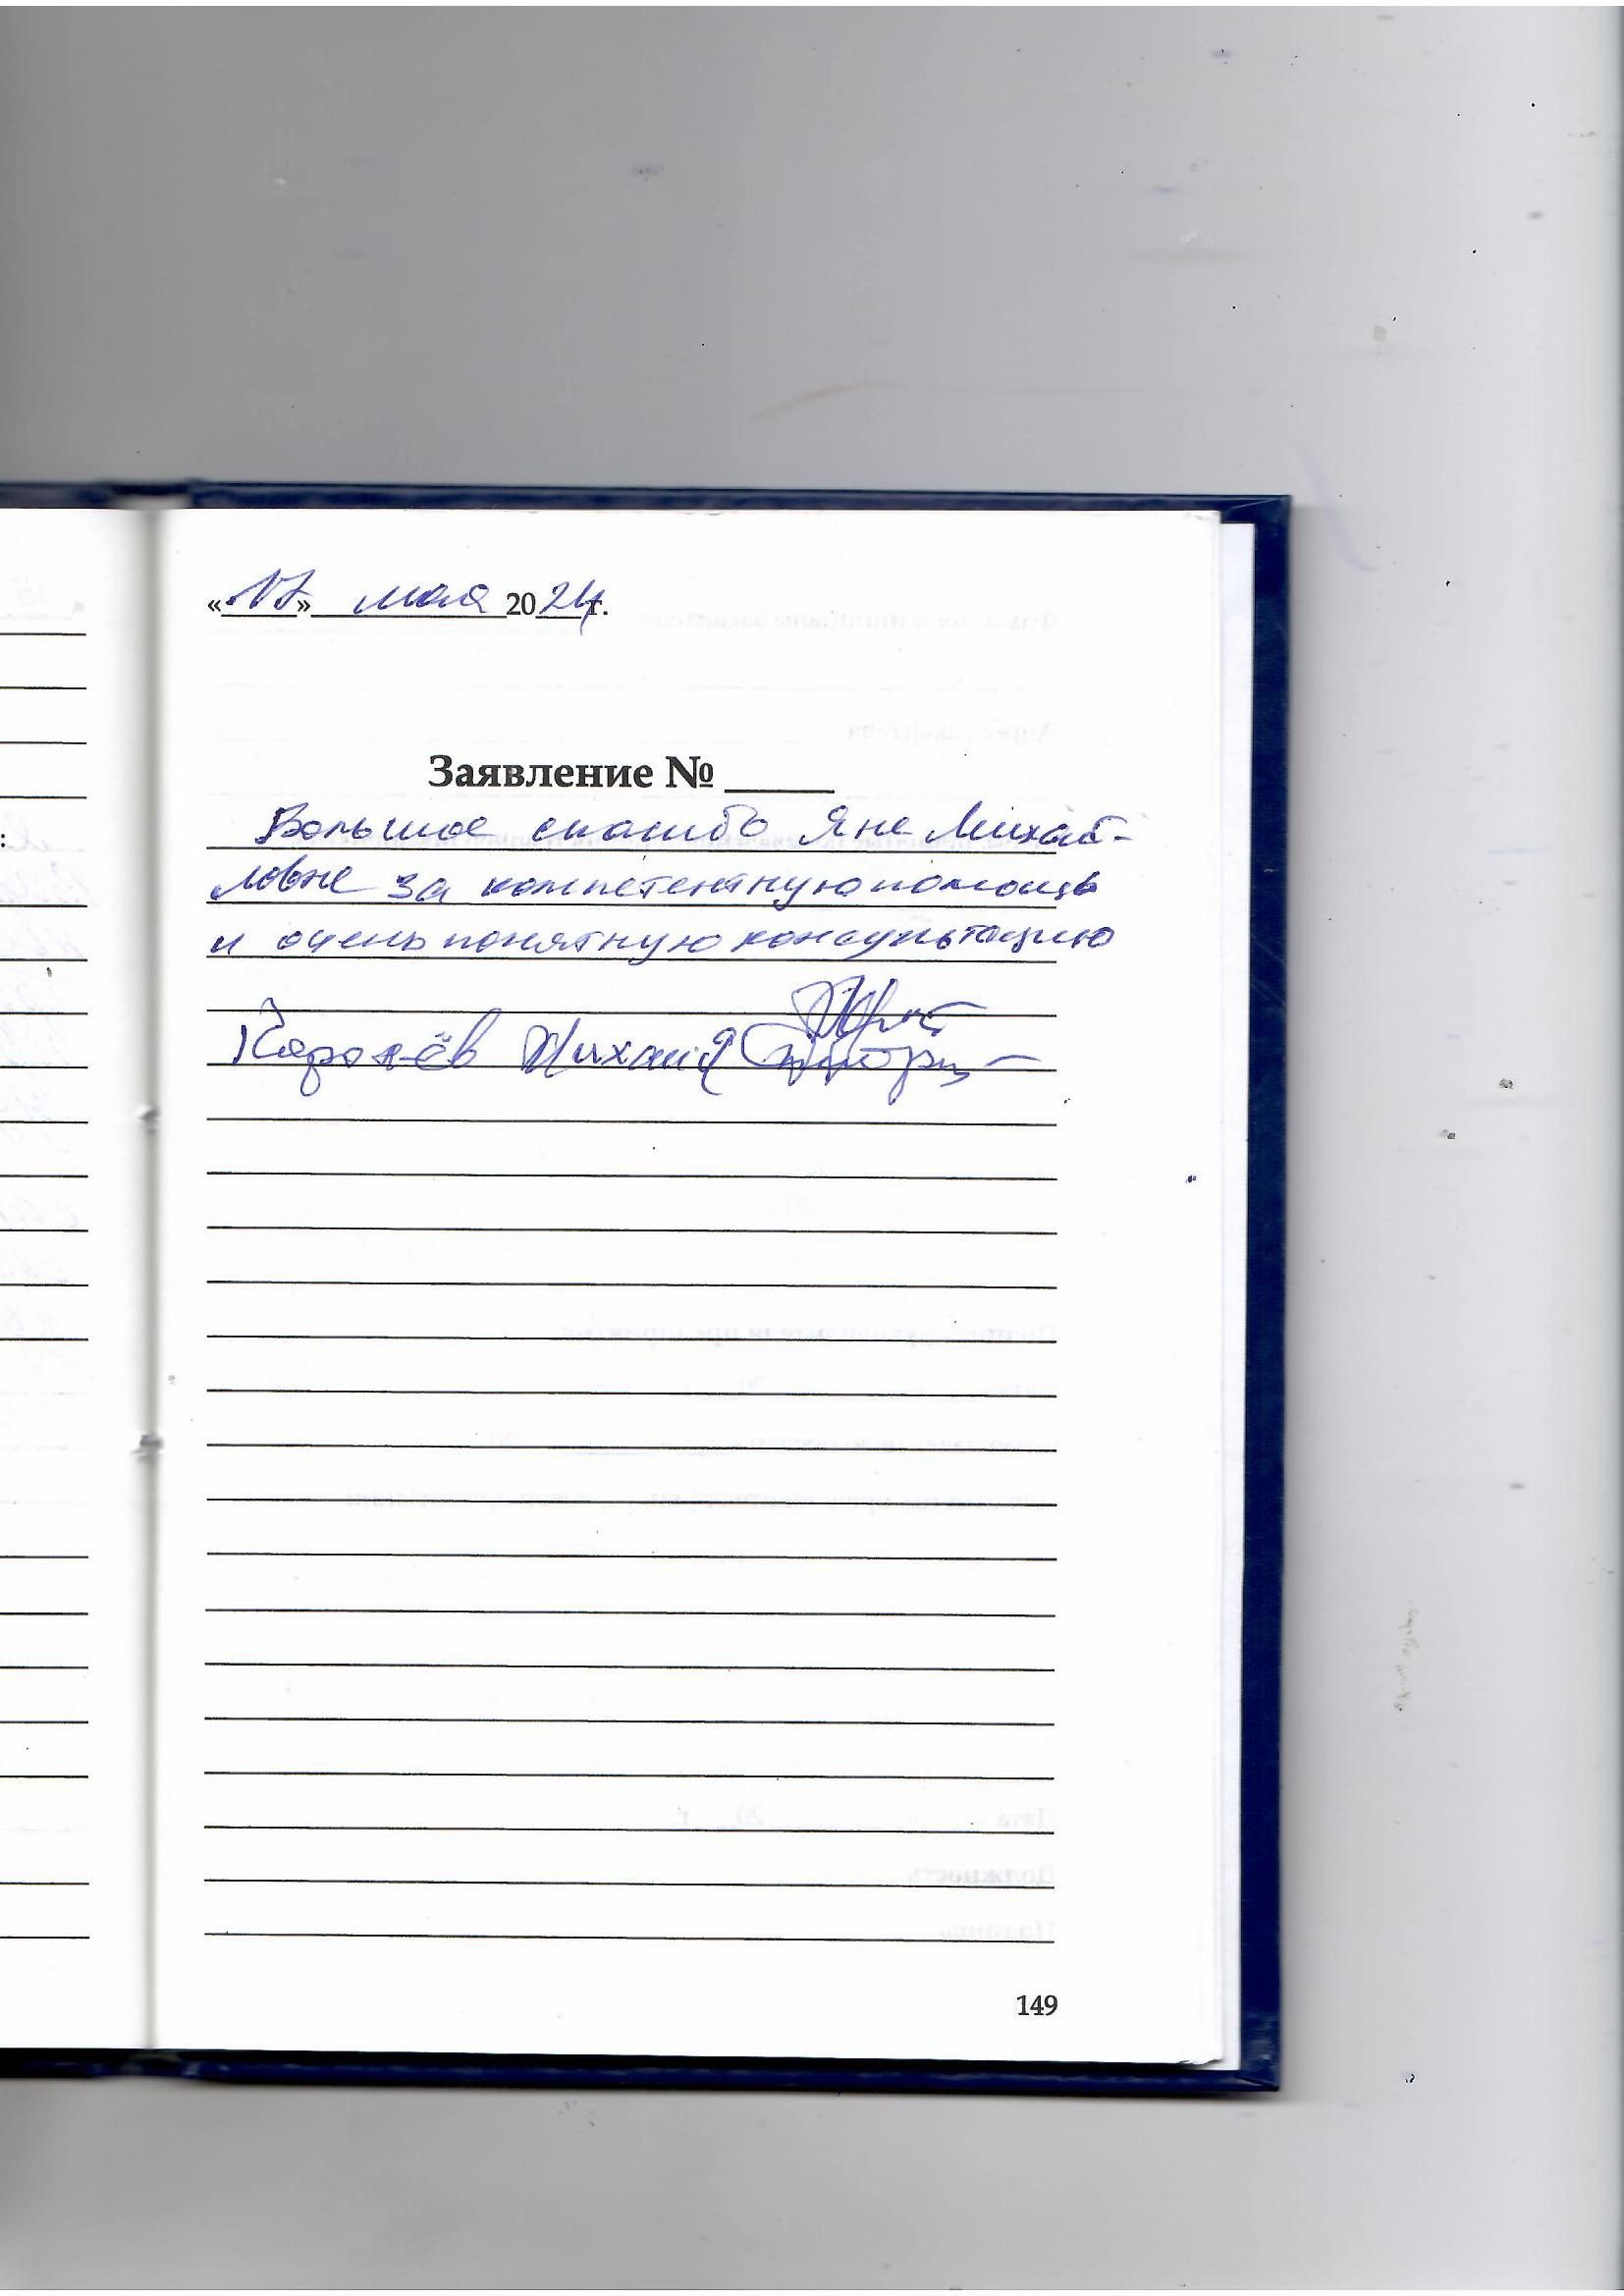 «17» мая 2024 г.
Заявление №
Большое спасибо Яне Михай-
ловне за компетентную помощь
и очень понятную консультацию
Михаил
149